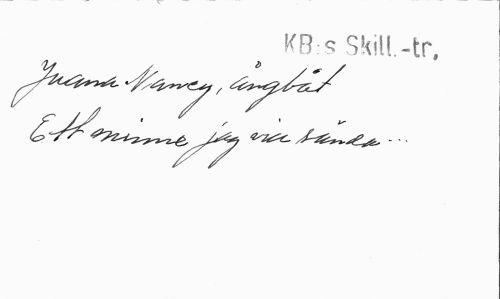 KB:s Skill.-tr.
Juana Nancy, ångbåt
Ett minne jag vill sända...